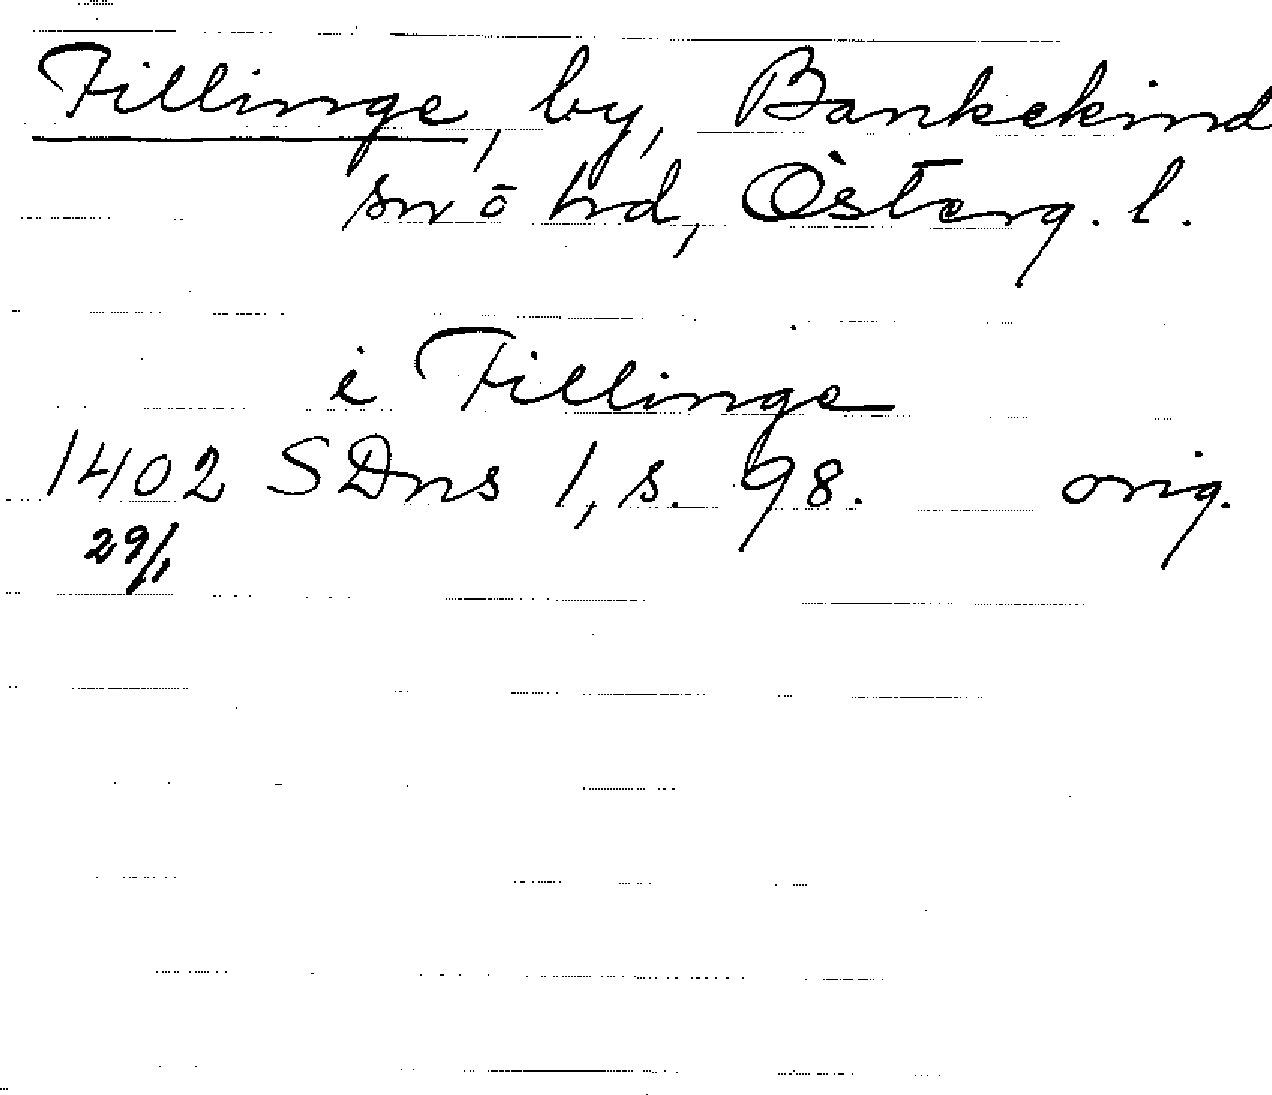 Fillinge, by, Bankekind
sn ō hd, Österg. l.
i Fillinge
1402 SDns 1, s. 98. orig.
29/1